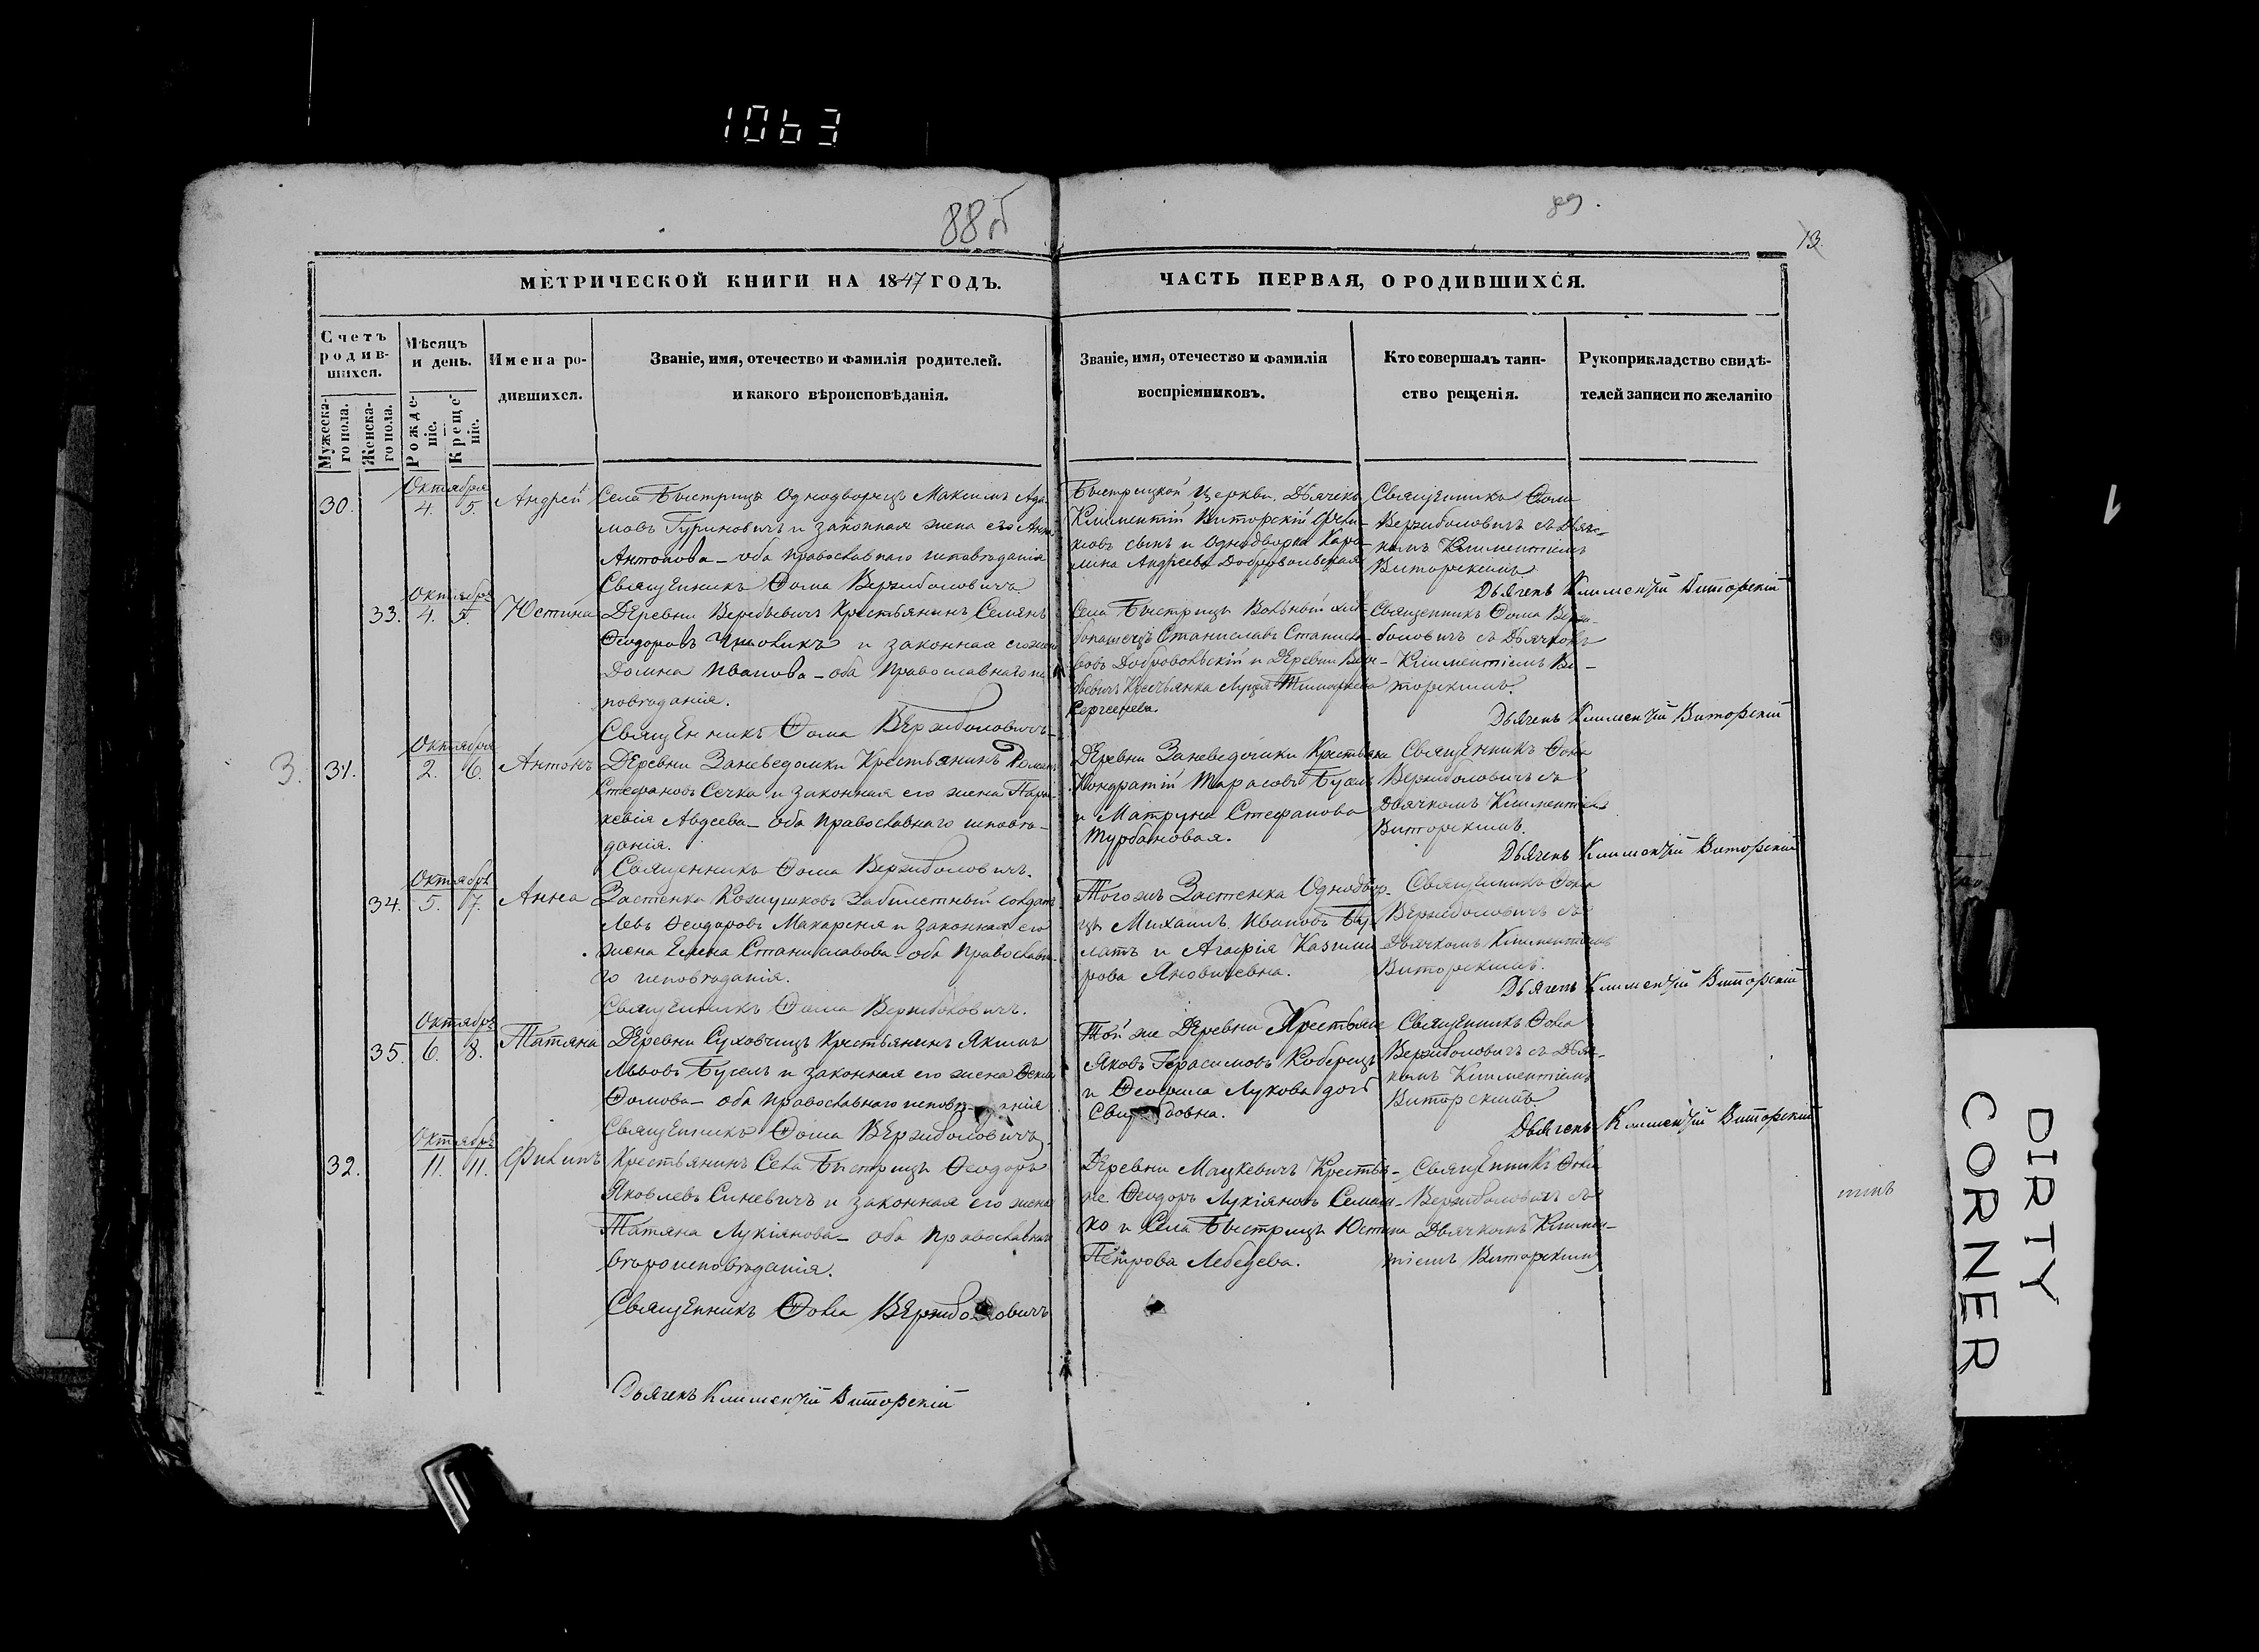 1063
88 об
89.
13.
МЕТРИЧЕСКОЙ КНИГИ НА 1847 ГОДЪ.
ЧАСТЬ ПЕРВАЯ, О РОДИВШИХСЯ.
Счетъ родив-шихся.
Мужеска-го пола.
Женска-го пола.
Мѣсяцъ и день.
Рожде-ніе.
Креще-ніе.
Имена ро-
дившихся.
Званіе, имя, отечество и фамилія родителей.
и какого вѣроисповѣданія.
Званіе, имя, отечество и фамилія
воспріемниковъ.
Кто совершалъ таин-
ство рещенія.
Рукоприкладство свидѣ-
телей записи по желанію
30.
Октября
4. 5.
Андрей
Села Быстрицъ Однодворецъ Максимъ Ада-
мовъ Гуриновичъ и законная жена его Анна
Антонова – оба православнаго исповѣданія
Священникъ Ѳома Вержболовичъ
Быстрицкой Церкви Дьячекъ
Климентій Виторскій
ковъ сынъ и Однодворка Каро-
лина Андреева Добровольская
Священникъ Ѳома
Вержболовичъ съ Дьяч-
комъ Климентіемъ
Виторскимъ
Дьячекъ Климентій Виторскій
33.
Октября
4. 5.
Юстина
Деревни Веребьевичъ Крестьянинъ Семенъ
Ѳеодоровъ и законная его жена
Домна Иванова – оба Православнаго ис-
повѣданія.
Священникъ Ѳома Вержболовичъ
Села Быстрицъ Вольный хлѣ-
бопашецъ Станиславъ Станисла-
вовъ Добровольскій и Деревни Вере-
бьевичъ Крестьянка Луція Тимофеева
Сергеева.
Священникъ Ѳома Верж-
боловичъ съ Дьячкомъ
Климентіемъ Ви-
торскимъ.
Дьячекъ Климентій Виторскій
3.
31.
Октября
2. 6.
Антонъ
Деревни Заневедомки Крестьянинъ Романъ
Стефановъ Сечко и законная его жена Пара-
кевія Авдеева – оба Православнаго исповѣ-
данія.
Священникъ Ѳома Вержболовичъ.
Деревни Заневедомки Крестьяне
Кондратій Тарасовъ Бусел
и Матруна Стефанова
Турбановая.
Священникъ Ѳома
Вержболовичъ съ
Дьячкомъ Климентіемъ
Виторскимъ.
Дьячекъ Климентій Виторскій
34.
Октября
5. 7.
Анна
Застенка Кожушковъ Забилетный солдатъ
Левъ Ѳеодоровъ Макареня и законная его
жена Елена Станиславова – оба Православна-
го исповѣданія.
Священникъ Ѳома Вержболовичъ.
Того жъ Застенка Однодвор-
цы Михаилъ Ивановъ Бу-
латъ и Агафія Казими-
рова Яновичевна.
Священникъ Ѳома
Вержболовичъ съ
Дьячкомъ Климентіемъ
Виторскимъ.
Дьячекъ Климентій Виторскій
35.
Октября
6. 8.
Татяна
Деревни Суховчицъ Крестьянинъ Якимъ
Львовъ Бугель и законная его жена
Ѳомова – оба православнаго исповѣданія
Священникъ Ѳома Вержболовичъ.
Той же Деревни Крестьяне
Яковъ Герасимовъ Коберецъ
и Лукова дочь
Священникъ Ѳома
Вержболовичъ съ Дьяч-
комъ Климентіемъ
Виторскимъ
Дьячекъ Климентій Виторскій
32.
Октября
11. 11.
Филипъ
Крестьянинъ Села Быстрицъ Ѳеодоръ
Яковлевъ Синевичъ и законная его жена
Татяна Лукіянова – оба Православнаго
вѣроисповѣданія.
Священникъ Ѳома Вержболовичъ
Деревни Мацкевичъ Крестья-
не Ѳеодоръ Лукіяновъ Семаш-
ко и Села Быстрицъ Юстина
Петрова Лебедева.
Священникъ Ѳома
Вержболовичъ съ
Дьячкомъ Климен-
тіемъ Виторскимъ
Дьячекъ Климентій Виторскій
DIRTY
CORNER
1